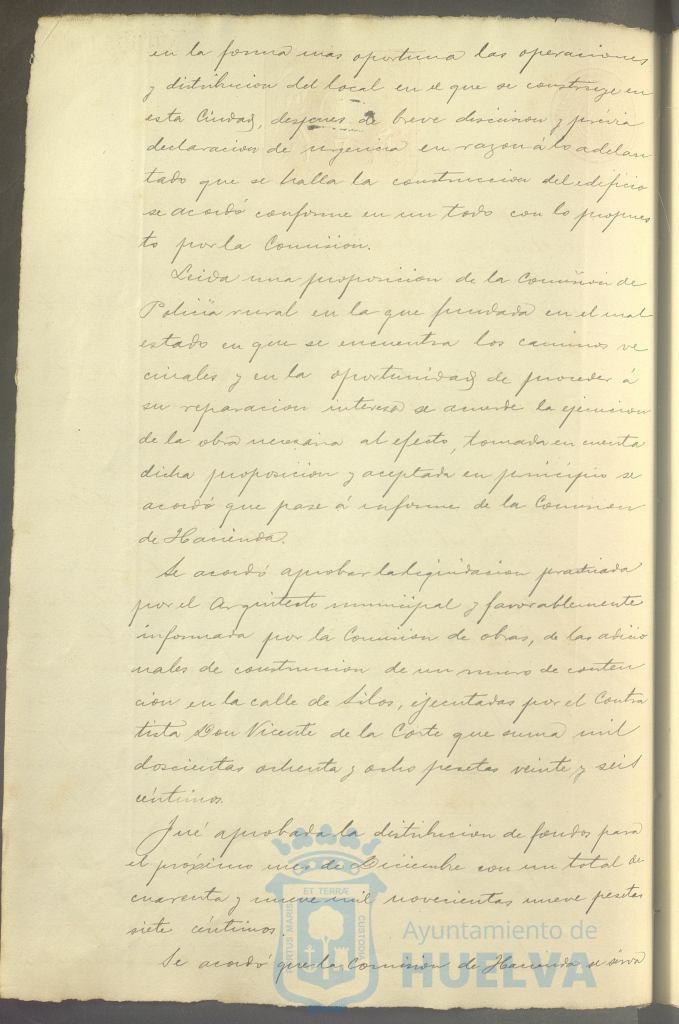 en la forma mas oportuna las operaciones
y distribucion del local en el que se construye en
esta Ciudad, despues de breve discusion y prévia
declaracion de urgencia en razon á lo adelan
tado que se halla la construccion del edificio
se acordó conforme en un todo con lo propues
to por la Comision.
Leida una proposicion de la Comision de
Policia rural en la que fundada en el mal
estado en que se encuentra los caminos ve
cinales y en la oportunidad de proceder á
su reparacion interesa se acuerde la ejecucion
de la obra necesaria al efecto, tomada en cuenta
dicha proposicion y aceptada en principio se
acordó que pase á informe de la Comision
de Hacienda.
Se acordó aprobar la liquidacion practicada
por el Arquitecto municipal y favorablemente
informada por la Comision de obras, de las adicio
nales de construccion de un muro de conten
cion en la calle de Silos, ejecutadas por el Contra
tista Don Vicente de la Corte que suma mil
doscientas ochenta y ocho pesetas veinte y seis
céntimos.
Fué aprobada la distribucion de fondos para
el próximo mes de Diciembre con un total de
cuarenta y nueve mil novecientas nueve pesetas
siete céntimos.
Se acordó que la Comision de Hacienda se sirva
ET TERRÆ
PORTUS MARIS
CUSTODIA
Ayuntamiento de
HUELVA